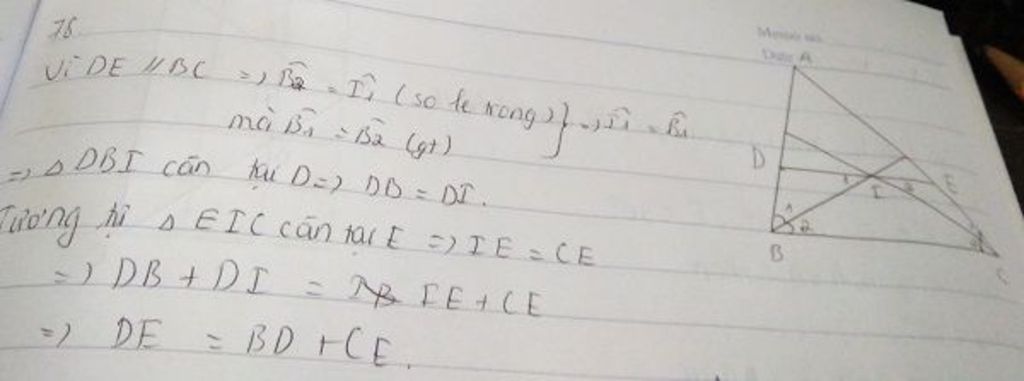 78
Vì DE // BC => B̂2 = Î1 (so le trong) } => Î1 = B̂1
mà B̂1 = B̂2 (gt)
=> Δ DBI cân tại D => DB = DI.
Tương tự Δ EIC cân tại E => IE = CE
=> DB + DI = IE + CE
=> DE = BD + CE.
A
D
1
I
2
E
1
2
B
C